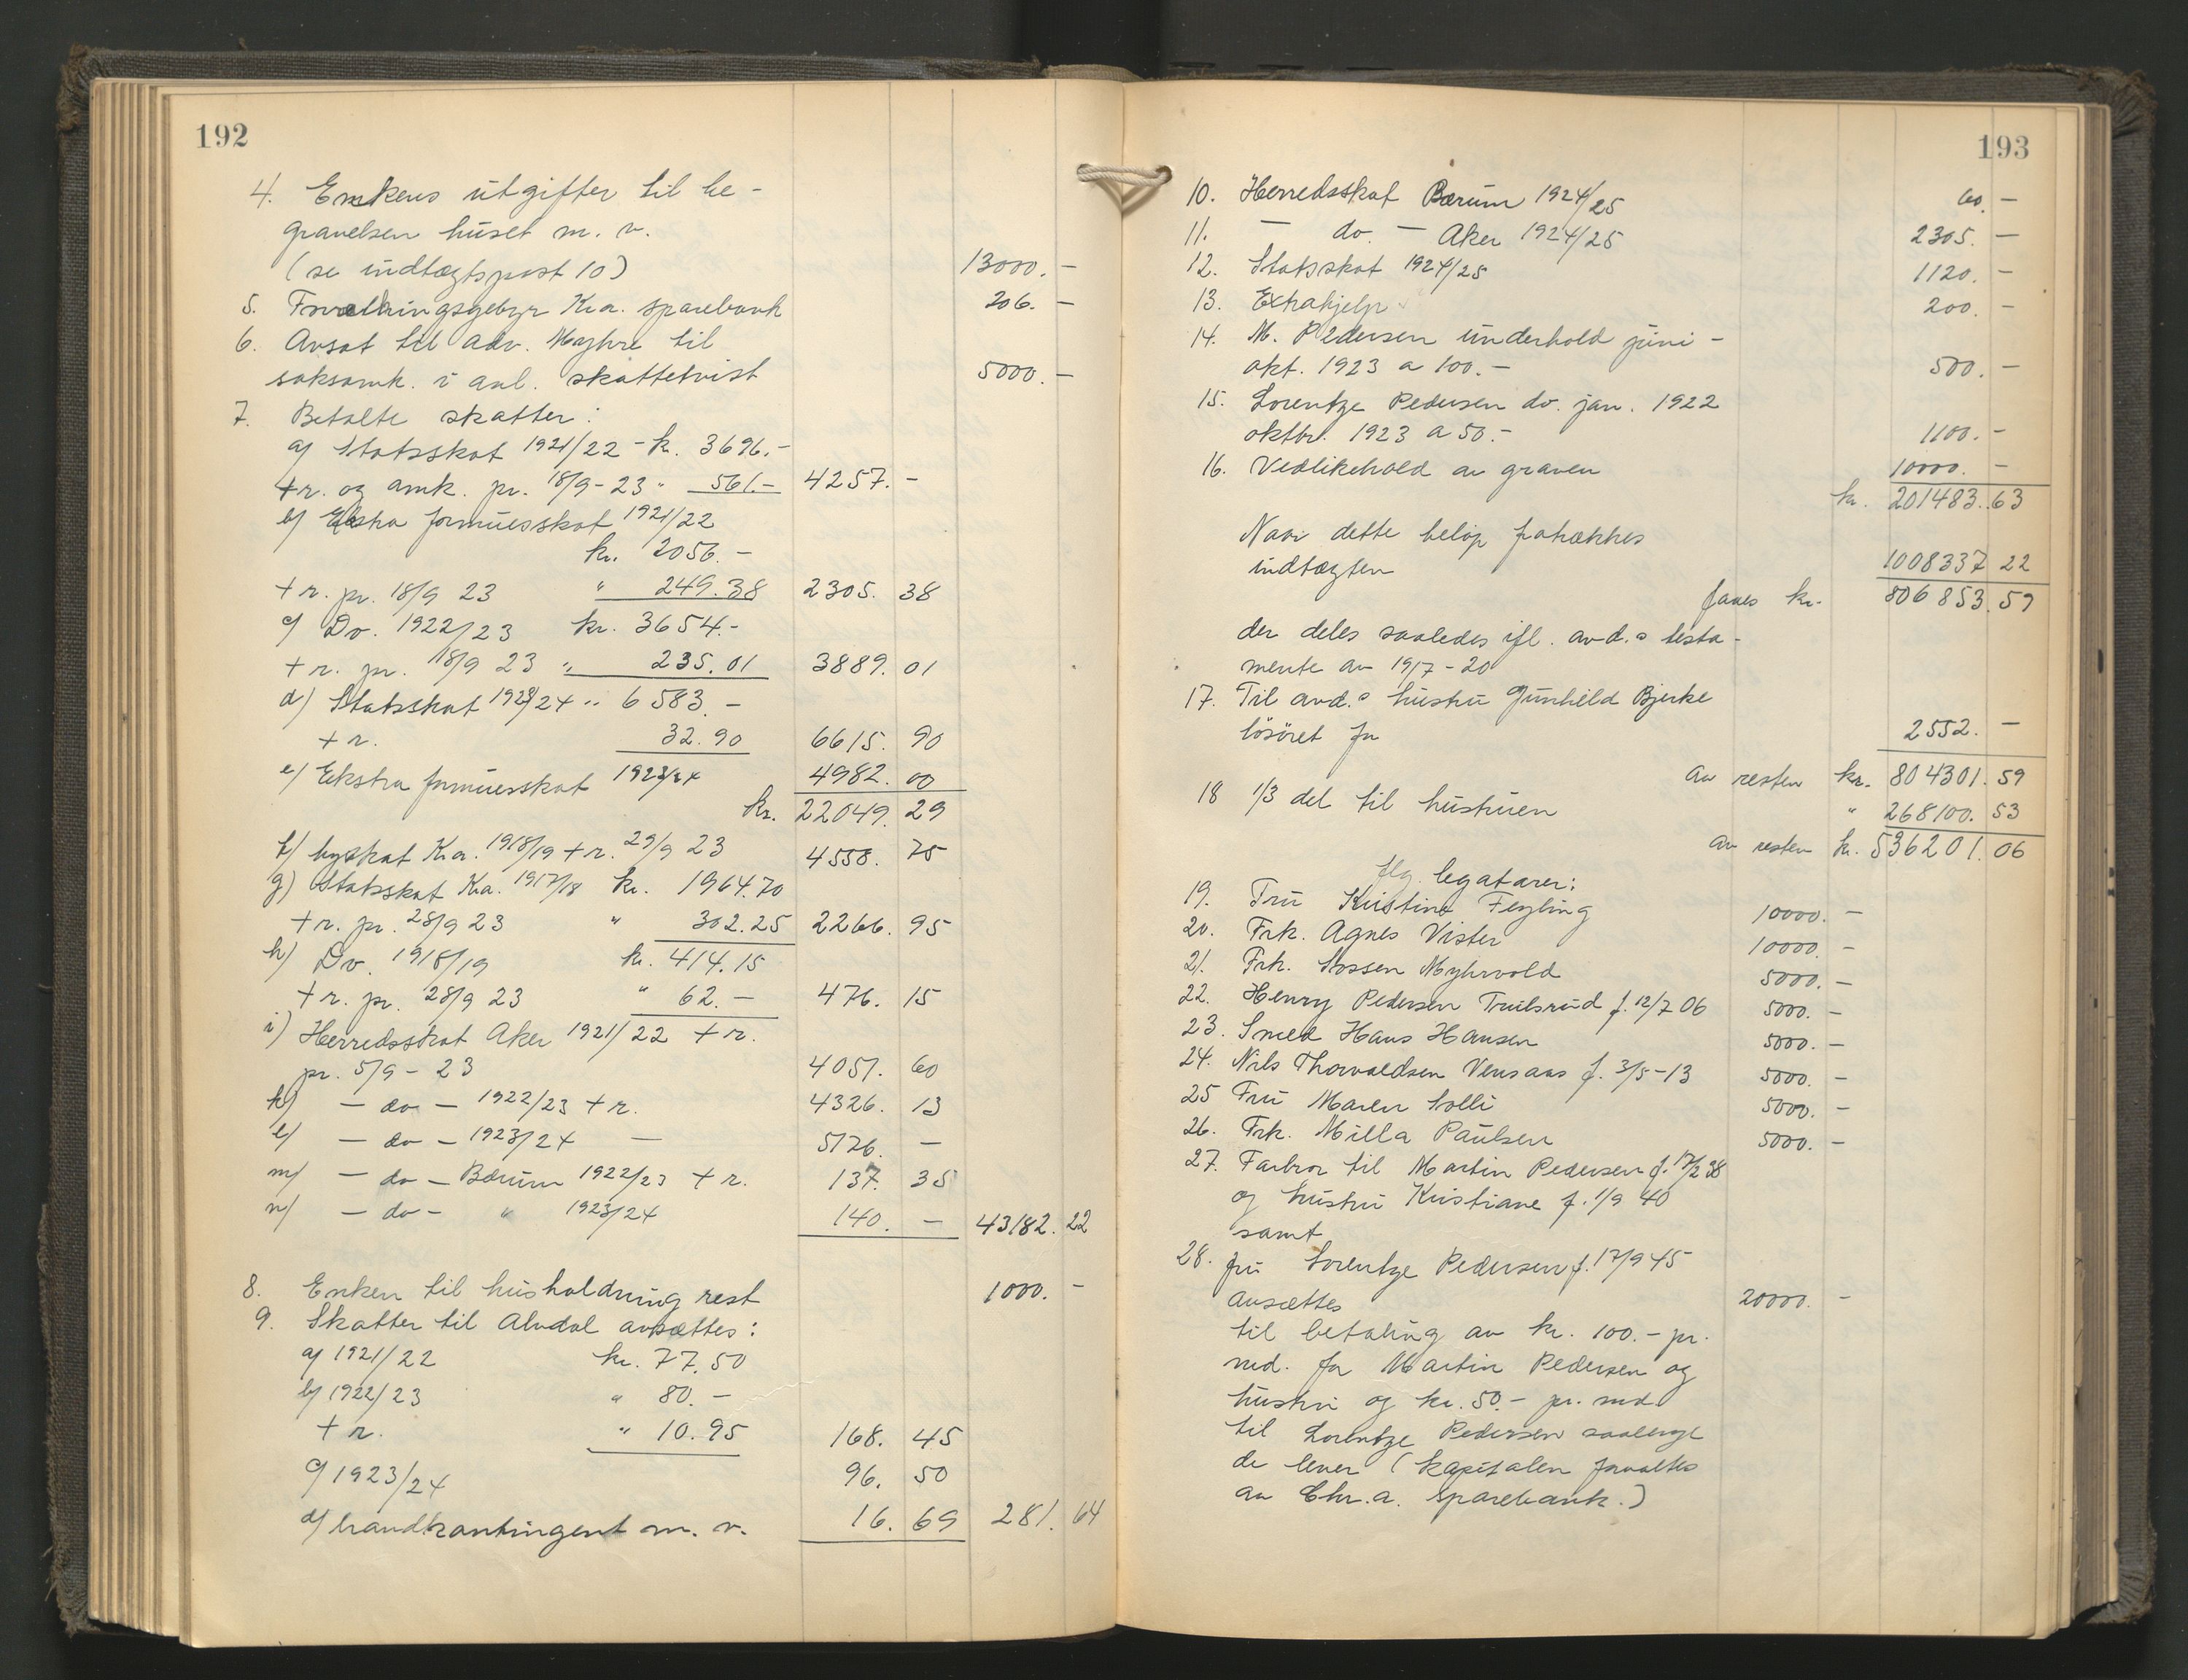 192
4. Enkens utgifter til be-
gravelsen huset m. v.
(se indtægtspost 10) 13000. -
5. Forvaltningsgebyr Kr.a. sparebank 206. -
6. Avsat til adv. Myhre til
saksomk. i anl. skattetvist 5000. -
7. Betalte skatter:
a) Statsskat 1921/22 - kr. 3696.-
+ r. og omk. pr. 18/9-23 " 561.- 4257. -
b) Ekstra formuesskat 1921/22
kr. 2056. -
+ r. pr. 18/9 23 " 249.38 2305. 38
c) Do. 1922/23 kr. 3654.-
+ r. pr. 18/9 23 " 235.01 3889. 01
d) Statsskat 1923/24 " 6583. -
+ r. 32.90 6615. 90
e) Ekstra formuesskat 1923/24 4982. 00
Kr. 22049. 29
f) byskat Kr.a. 1918/19 + r. 29/9 23 4558. 75
g) Statsskat Kr.a. 1917/18 kr. 1964.70
+ r. pr. 28/9 23 " 302.25 2266. 95
h) Do. 1918/19 kr. 414.15
+ r. pr. 28/9 23 " 62. - 476. 15
i) Herredsskat Aker 1921/22 + r.
pr. 5/9 - 23 4051. 60
k) - do - 1922/23 + r. 4326. 13
l) - do - 1923/24 - 5126. -
m) - do - Bærum 1922/23 + r. 137. 35
n) - do - " 1923/24 140. - 43182. 22
8. Enken til husholdning rest 1000. -
9. Skatter til Alvdal avsættes:
a) 1921/22 kr. 77.50
b) 1922/23 " 80. -
+ r. " 10.95 168. 45
c) 1923/24 96. 50
d) brandkontingent m. v. 16. 69 281. 64
193
10. Herredsskat Bærum 1924/25 60. -
11. - do. - Aker 1924/25 2305. -
12. Statsskat 1924/25 1120. -
13. Extrahjelp 200. -
14. M. Pedersen underhold juni -
okt. 1923 a 100. - 500. -
15. Lorentze Pedersen do. jan. 1922
oktbr. 1923 a 50.- 1100. -
16. Vedlikehold av graven 10000. -
kr. 201483. 63
Naar dette beløp fratrækkes
indtægten 1008337 22
faaes kr. 806853. 59
der deles saaledes ifl. avd.s testa-
mente av 19/7-20
17. Til avd.s hustru Gunhild Bjerke
løsøret for 2552. -
Av resten kr. 804301. 59
18 1/3 del til hustruen " 268100. 53
av resten kr. 536201. 06
flg. legatarer:
19. Fru Kristine Feyling 10000. -
20. Frk. Agnes Vister 10000. -
21. Frk. Sossen Myhrvold 5000. -
22. Henry Pedersen Trulsrud f. 12/7 06 5000. -
23. Smed Hans Hansen 5000. -
24. Nils Thorvaldsen Vensaas f. 3/5-13 5000. -
25 Fru Maren Solli 5000. -
26. Frk. Milla Paulsen 5000. -
27. Farbror til Martin Pedersen f. 17/2 38
og hustru Kristiane f. 1/9 40
samt
28. fru Lorentze Pedersen f. 17/9 45
avsættes 20000. -
til betaling av kr. 100.- pr.
md. for Martin Pedersen og
hustru og kr. 50.- pr. md
til Lorentze Pedersen saalenge
de lever (kapitalen forvaltes
av Chr.a. sparebank.)